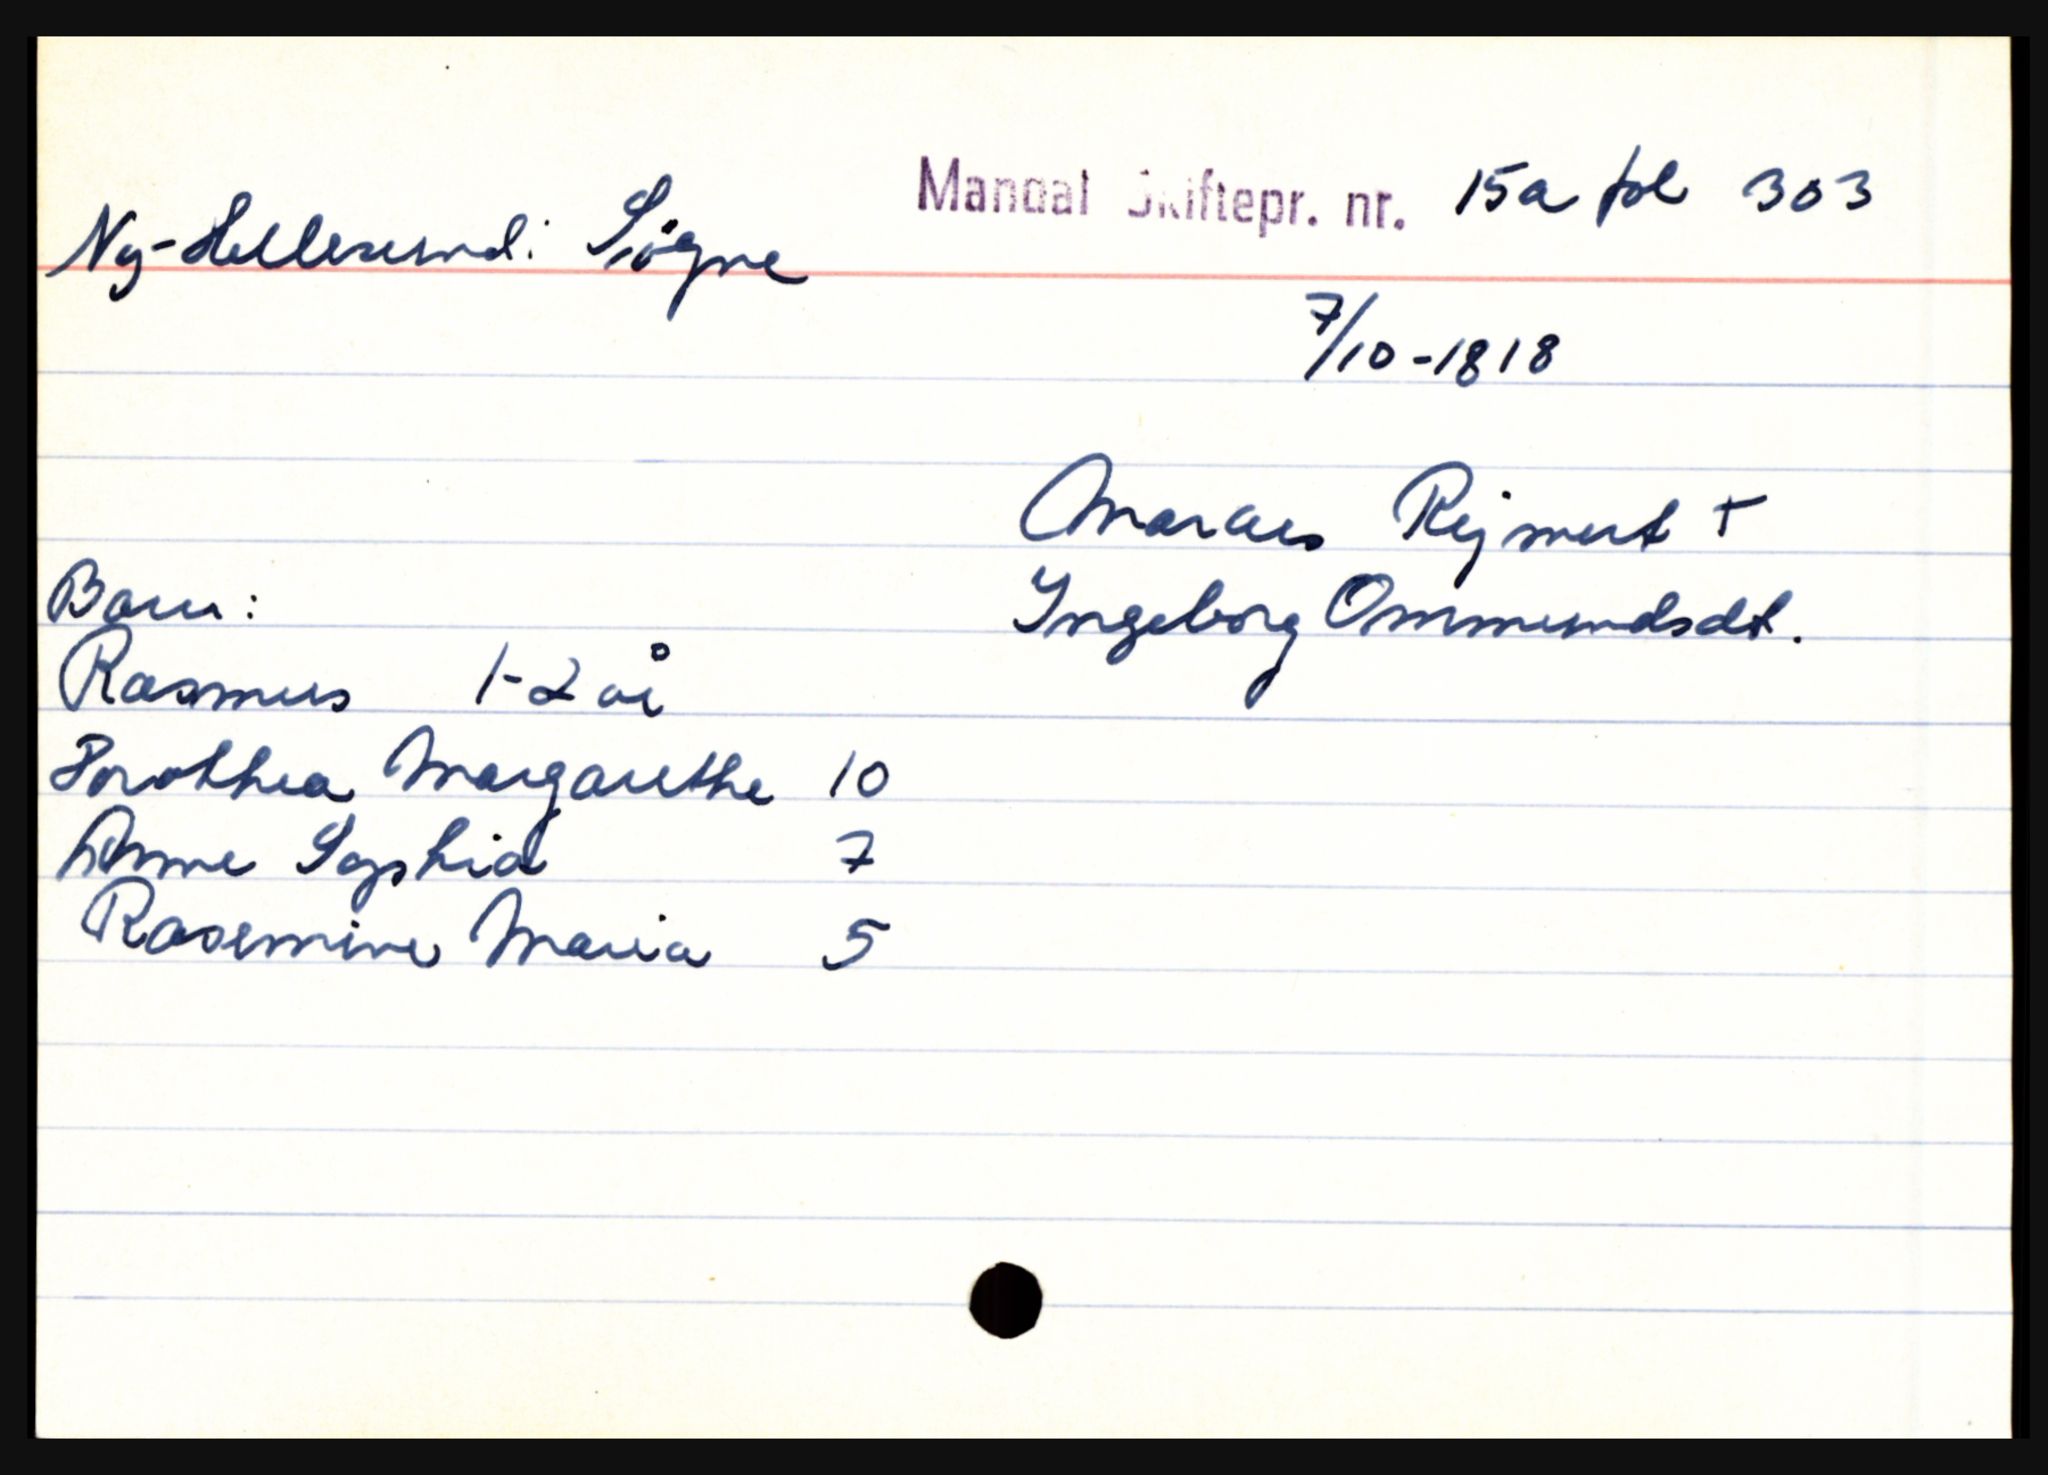 Mandal Skiftepr. nr. 15a fol 303
Ny-Hellesund i Søgne
7/10-1818
Marcus Rejmert +
Ingeborg Ommundsdt.
Barn:
Rasmus 1-2 år
Dorothea Margarethe 10
Anne Sophia 7
Rasemine Maria 5